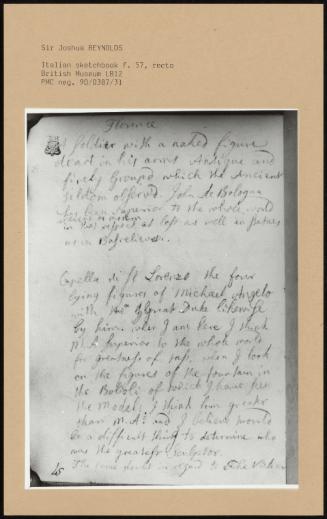 Sir Joshua REYNOLDS
Italian sketchbook f. 57, recto
British Museum LB12
PMC neg. 90/0387/31
Florence
A Soldier with a naked figure
dead in his arms Antique and
finely Group'd which the Ancients
seldom observed. John de Bologna
has been superior to the whole world
in this respect at lest as well in statues
as in Basrelieves.
Capella di St Lorenzo the four
lying figures of Michael Angelo
with the Great Duke likewise
by him. when I am here I think
M.A. superior to the whole world
for greatness of tast. when I look
on the figures of the fountain in
the Boboli of which I have seen
the Models I think him greater
than M.A. and I believe would
be a difficult thing to determine who
was the greatest Sculptor.
The same doubt in regard to The